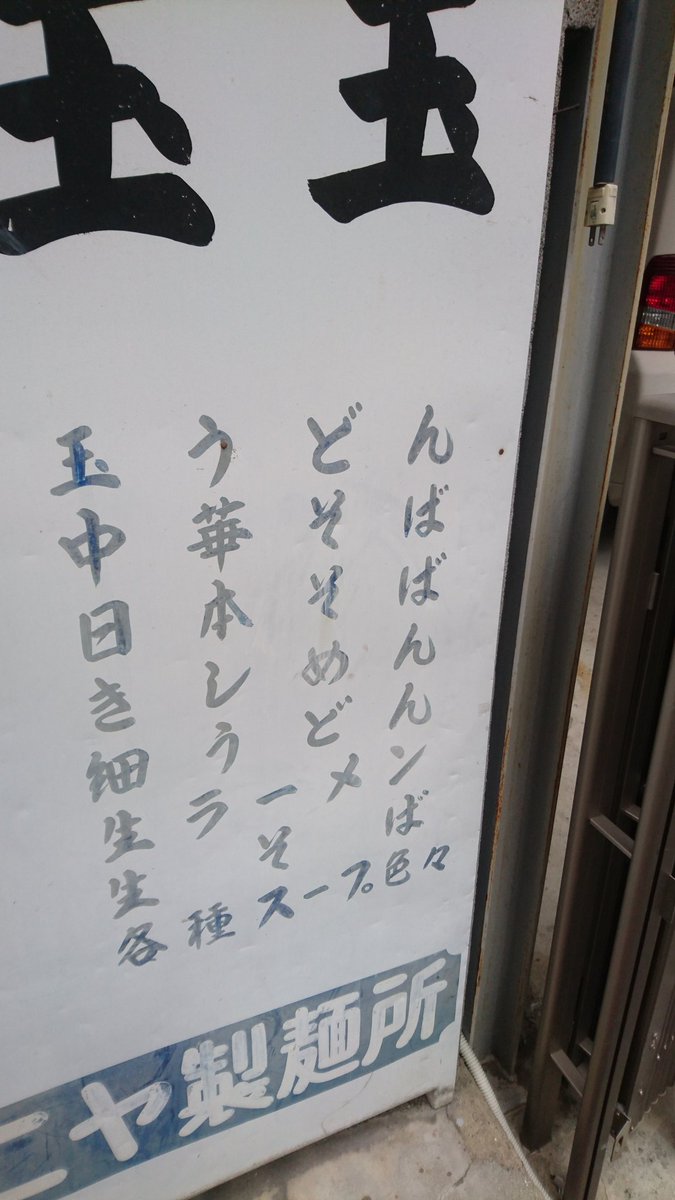 玉 玉
玉うどん
中華そば
日本そば
きしめん
細うどん
生ラーメン
生そば
各種スープ色々
ニヤ製麺所